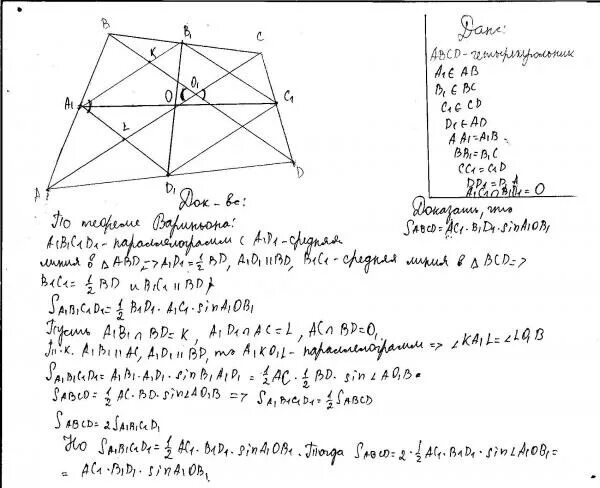 B
B₁
C
K
O₁
A₁
O
C₁
L
A
D₁
D
Дано:
ABCD - четырехугольник
A₁ ∈ AB
B₁ ∈ BC
C₁ ∈ CD
D₁ ∈ AD
AA₁ = A₁B
BB₁ = B₁C
CC₁ = C₁D
DD₁ = D₁A
A₁C₁ ∩ B₁D₁ = O
Доказать, что
SABCD = A₁C₁ · B₁D₁ · sin A₁OB₁
Док-во:
По теореме Вариньона:
A₁B₁C₁D₁ - параллелограмм ( A₁D₁ - средняя
линия в △ ABD => A₁D₁ = 1/2 BD, A₁D₁ || BD, B₁C₁ - средняя линия в △ BCD =>
B₁C₁ = 1/2 BD и B₁C₁ || BD)
SA₁B₁C₁D₁ = 1/2 B₁D₁ · A₁C₁ · sin A₁OB₁
Пусть A₁B₁ ∩ BD = K, A₁D₁ ∩ AC = L, AC ∩ BD = O₁
Т.к. A₁B₁ || AC, A₁D₁ || BD, то A₁KO₁L - параллелограмм => ∠KA₁L = ∠LO₁B
SA₁B₁C₁D₁ = A₁B₁ · A₁D₁ · sin B₁A₁D₁ = 1/2 AC · 1/2 BD · sin ∠AO₁B
SABCD = 1/2 AC · BD · sin ∠AO₁B => SA₁B₁C₁D₁ = 1/2 SABCD
SABCD = 2SA₁B₁C₁D₁
Но SA₁B₁C₁D₁ = 1/2 A₁C₁ · B₁D₁ · sin A₁OB₁. Тогда SABCD = 2 · 1/2 A₁C₁ · B₁D₁ · sin ∠A₁OB₁ =
= A₁C₁ · B₁D₁ · sin A₁OB₁